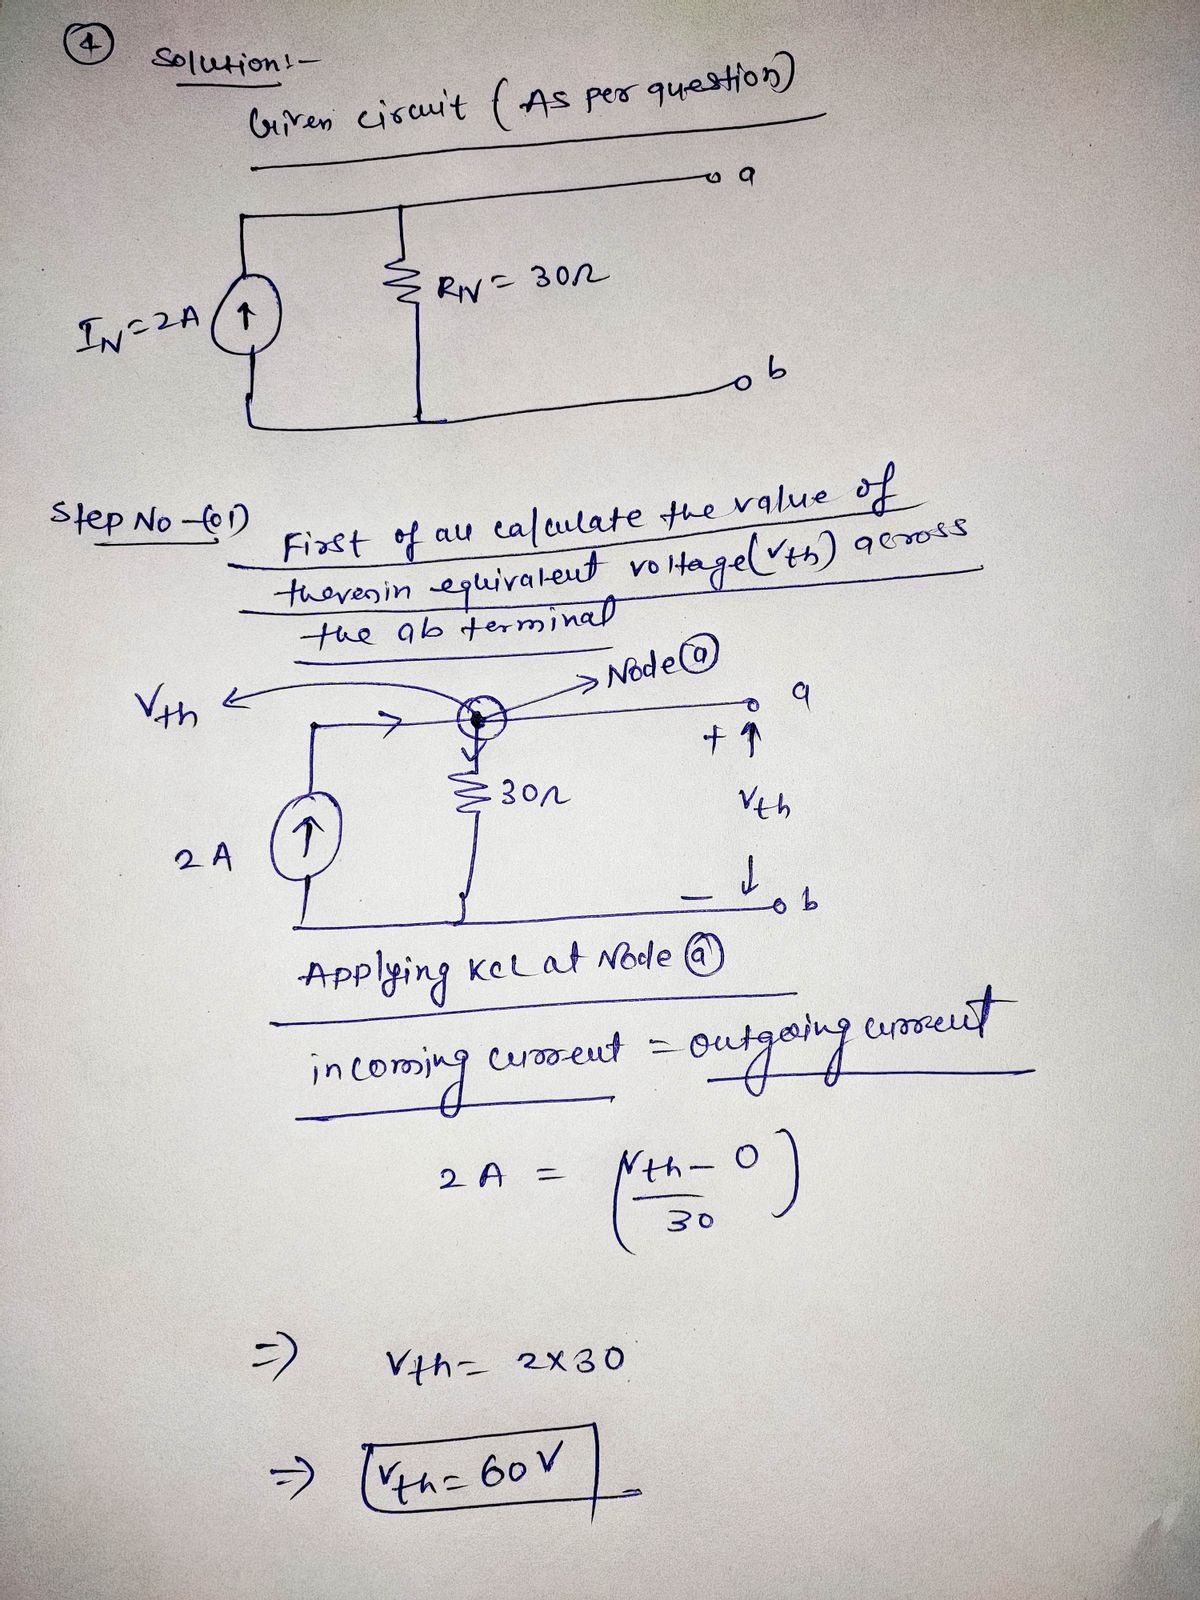 1
Solution:-
Given circuit (As per question)
a
RN = 30Ω
IN = 2A
b
Step No-(01)
First of all calculate the value of
thevenin equivalent voltage (Vth) across
the ab terminal
Node a
Vth
a
+
30Ω
Vth
2 A
-
b
Applying KCL at Node a
incoming current = outgoing current
2 A = (Vth - 0 / 30)
=> Vth = 2×30
=> Vth = 60 V